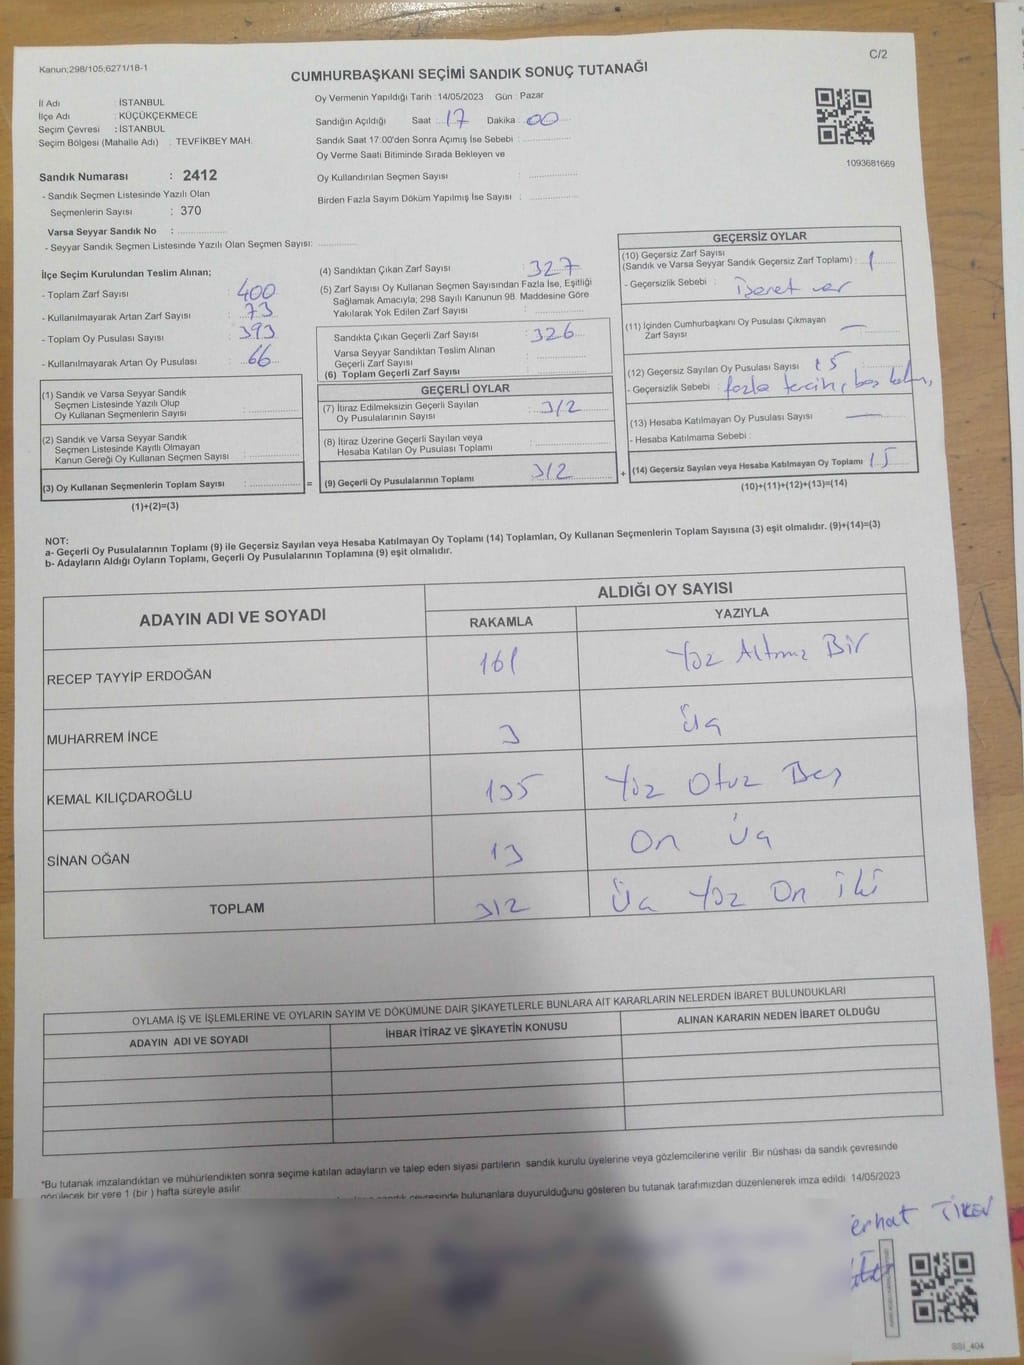 Kanun;298/105;6271/18-1
C/2
CUMHURBAŞKANI SEÇİMİ SANDIK SONUÇ TUTANAĞI
İl Adı : İSTANBUL
İlçe Adı : KÜÇÜKÇEKMECE
Seçim Çevresi : İSTANBUL
Seçim Bölgesi (Mahalle Adı) : TEVFİKBEY MAH.
Oy Vermenin Yapıldığı Tarih : 14/05/2023 Gün : Pazar
Sandığın Açıldığı Saat : 17 Dakika : 00
Sandık Saat 17.00'den Sonra Açımış İse Sebebi :
Oy Verme Saati Bitiminde Sırada Bekleyen ve
Oy Kullandırılan Seçmen Sayısı :
Birden Fazla Sayım Döküm Yapılmış İse Sayısı :
1093681669
Sandık Numarası : 2412
- Sandık Seçmen Listesinde Yazılı Olan
Seçmenlerin Sayısı : 370
Varsa Seyyar Sandık No :
- Seyyar Sandık Seçmen Listesinde Yazılı Olan Seçmen Sayısı:
İlçe Seçim Kurulundan Teslim Alınan;
- Toplam Zarf Sayısı : 400
- Kullanılmayarak Artan Zarf Sayısı : 73
- Toplam Oy Pusulası Sayısı : 393
- Kullanılmayarak Artan Oy Pusulası : 66
(1) Sandık ve Varsa Seyyar Sandık
Seçmen Listesinde Yazılı Olup
Oy Kullanan Seçmenlerin Sayısı :
(2) Sandık ve Varsa Seyyar Sandık
Seçmen Listesinde Kayıtlı Olmayan
Kanun Gereği Oy Kullanan Seçmen Sayısı :
(3) Oy Kullanan Seçmenlerin Toplam Sayısı : =
(1)+(2)=(3)
(4) Sandıktan Çıkan Zarf Sayısı : 327
(5) Zarf Sayısı Oy Kullanan Seçmen Sayısından Fazla İse, Eşitliği
Sağlamak Amacıyla; 298 Sayılı Kanunun 98. Maddesine Göre
Yakılarak Yok Edilen Zarf Sayısı :
Sandıkta Çıkan Geçerli Zarf Sayısı : 326
Varsa Seyyar Sandıktan Teslim Alınan
Geçerli Zarf Sayısı :
(6) Toplam Geçerli Zarf Sayısı :
GEÇERLİ OYLAR
(7) İtiraz Edilmeksizin Geçerli Sayılan
Oy Pusulalarının Sayısı : 312
(8) İtiraz Üzerine Geçerli Sayılan veya
Hesaba Katılan Oy Pusulası Toplamı :
(9) Geçerli Oy Pusulalarının Toplamı : 312 +
GEÇERSİZ OYLAR
(10) Geçersiz Zarf Sayısı
(Sandık ve Varsa Seyyar Sandık Geçersiz Zarf Toplamı) : 1
- Geçersizlik Sebebi : işaret var
(11) İçinden Cumhurbaşkanı Oy Pusulası Çıkmayan
Zarf Sayısı : —
(12) Geçersiz Sayılan Oy Pusulası Sayısı : 15
- Geçersizlik Sebebi : fazla tercih, boş
(13) Hesaba Katılmayan Oy Pusulası Sayısı : —
- Hesaba Katılmama Sebebi :
(14) Geçersiz Sayılan veya Hesaba Katılmayan Oy Toplamı : 15
(10)+(11)+(12)+(13)=(14)
NOT:
a- Geçerli Oy Pusulalarının Toplamı (9) ile Geçersiz Sayılan veya Hesaba Katılmayan Oy Toplamı (14) Toplamları, Oy Kullanan Seçmenlerin Toplam Sayısına (3) eşit olmalıdır. (9)+(14)=(3)
b- Adayların Aldığı Oyların Toplamı, Geçerli Oy Pusulalarının Toplamına (9) eşit olmalıdır.
ADAYIN ADI VE SOYADI
ALDIĞI OY SAYISI
RAKAMLA YAZIYLA
RECEP TAYYİP ERDOĞAN 161 Yüz Altmış Bir
MUHARREM İNCE 3 Üç
KEMAL KILIÇDAROĞLU 135 Yüz Otuz Beş
SİNAN OĞAN 13 On Üç
TOPLAM 312 Üç Yüz On iki
OYLAMA İŞ VE İŞLEMLERİNE VE OYLARIN SAYIM VE DÖKÜMÜNE DAİR ŞİKAYETLERLE BUNLARA AİT KARARLARIN NELERDEN İBARET BULUNDUKLARI
ADAYIN ADI VE SOYADI
İHBAR İTİRAZ VE ŞİKAYETİN KONUSU
ALINAN KARARIN NEDEN İBARET OLDUĞU
"Bu tutanak imzalandıktan ve mühürlendikten sonra seçime katılan adayların ve talep eden siyasi partilerin sandık kurulu üyelerine veya gözlemcilerine verilir .Bir nüshası da sandık çevresinde
görülecek bir yere 1 (bir ) hafta süreyle asılır.
sandık çevresinde bulunanlara duyurulduğunu gösteren bu tutanak tarafımızdan düzenlenerek imza edildi. 14/05/2023
erhat
SSI_404